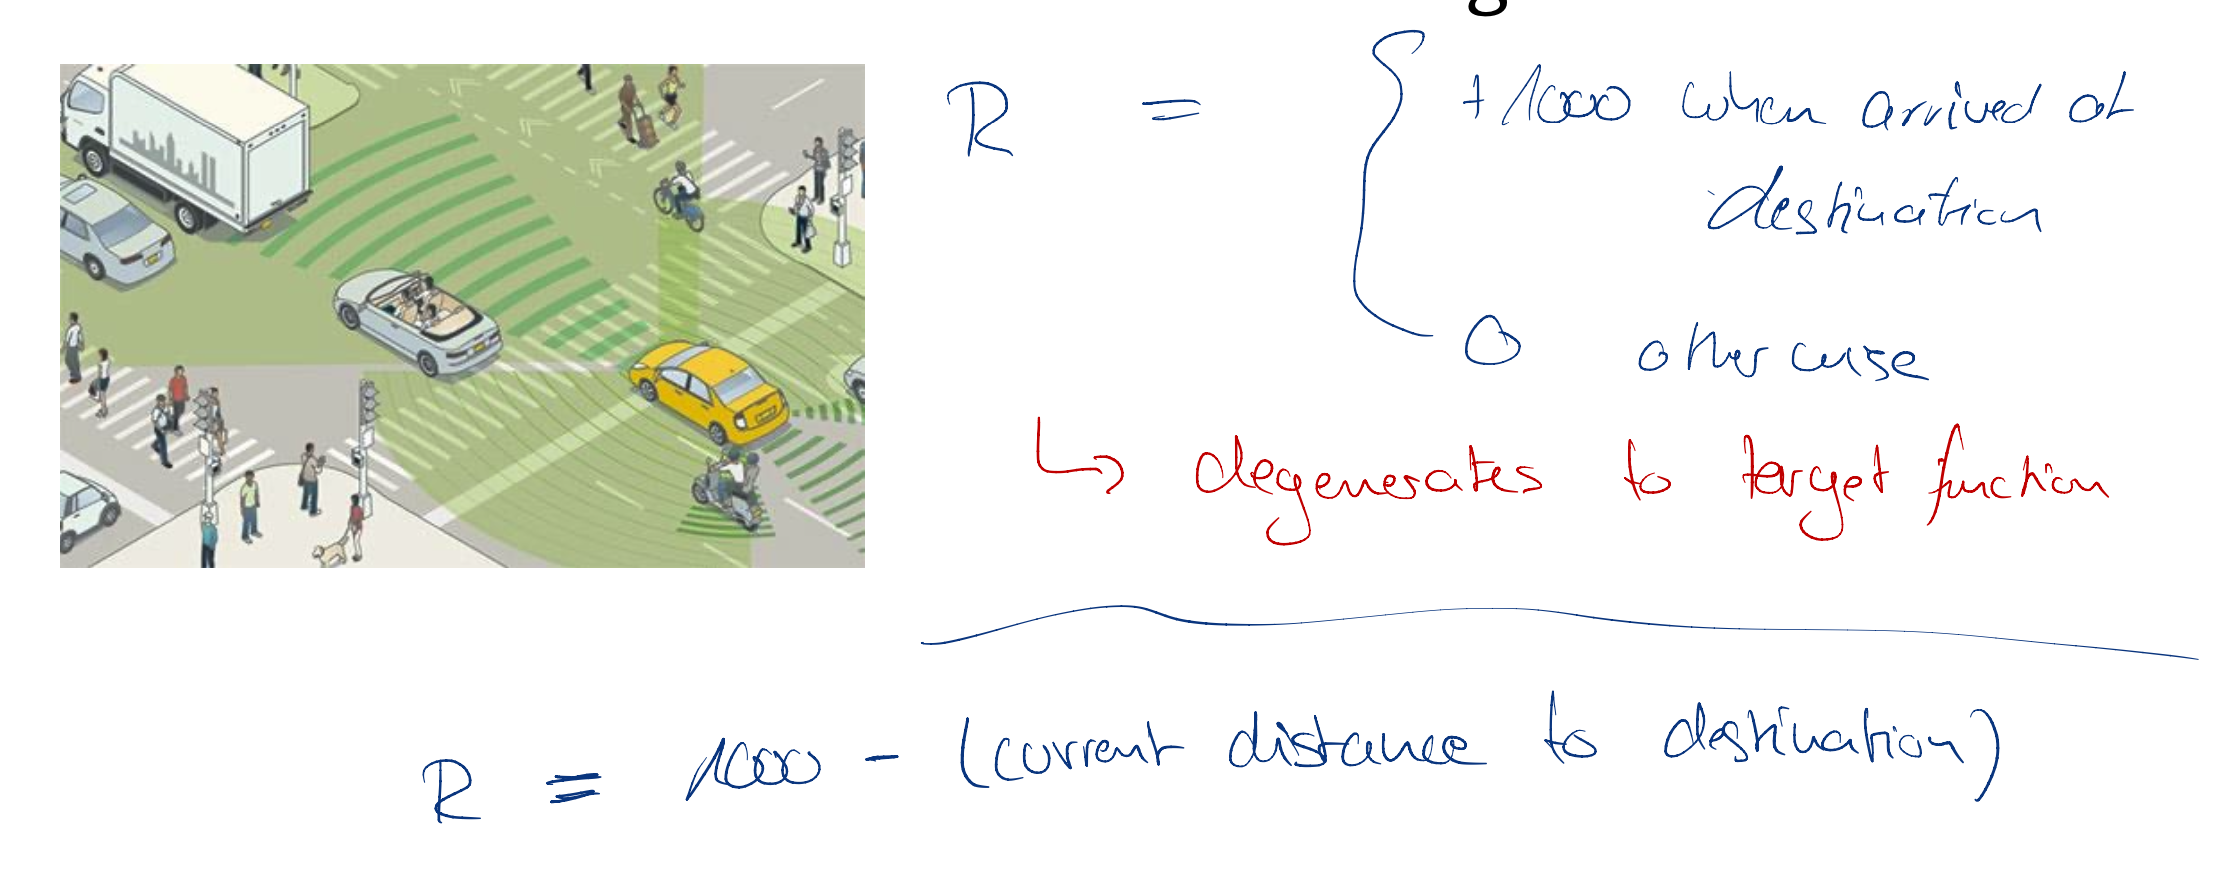 R = { +1000 when arrived at
destination
0 otherwise
↳ degenerates to target function
R = 1000 - (current distance to destination)